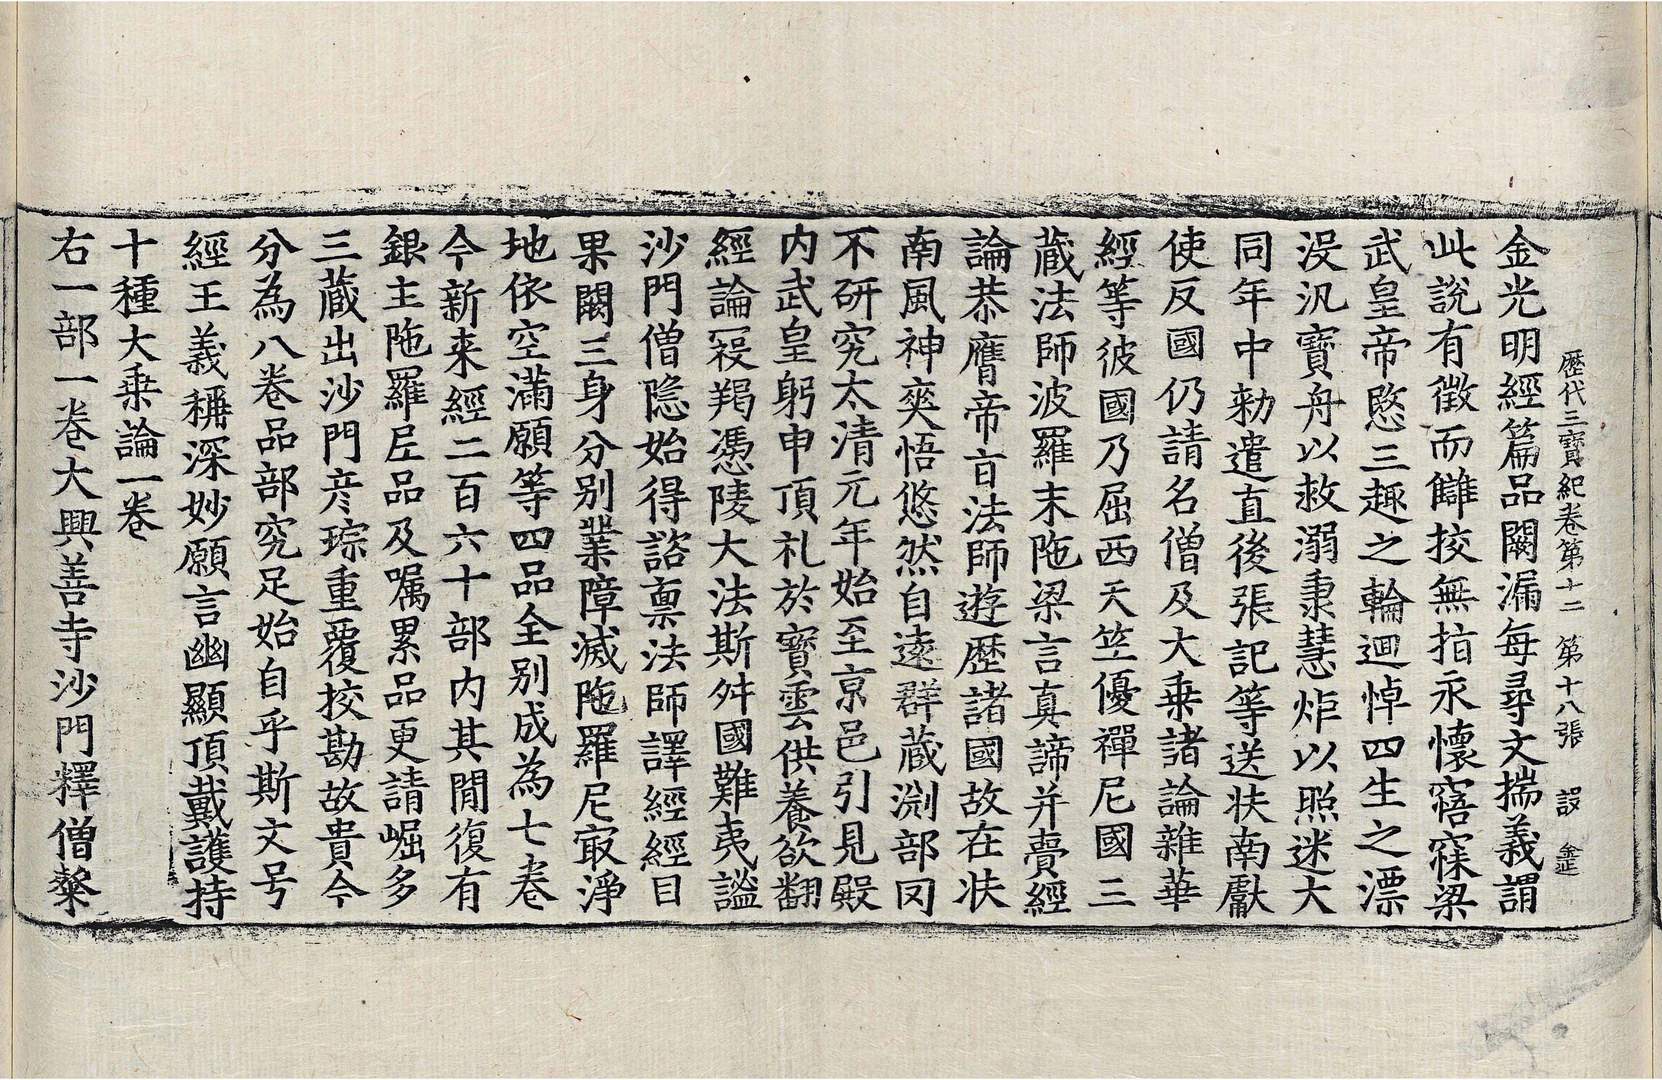 歷代三寶紀卷第十二 第十八張 設
金光明經篇品闕漏每尋文揣義謂
此說有徵而讎挍無指永懷寤寐梁
武皇帝愍三趣之輪迴悼四生之漂
沒汎寶舟以救溺秉慧炬以照迷大
同年中勑遣直後張記等送扶南獻
使反國仍請名僧及大乗諸論雜華
經等彼國乃屈西天竺優禪尼國三
藏法師波羅末陁梁言真諦并賫經
論恭膺帝㫖法師遊歷諸國故在扶
南風神爽悟悠然自遠群藏渕部罔
不研究太清元年始至京邑引見殿
内武皇躬申頂礼於寶雲供養欲翻
經論寇羯憑陵大法斯舛國難夷謐
沙門僧隠始得諮禀法師譯經經目
果闕三身分别業障滅陁羅尼㝡淨
地依空滿願等四品全别成為七卷
今新来經二百六十部内其間復有
銀主陁羅尼品及嘱累品更請崛多
三藏出沙門彦琮重覆挍勘故貴今
分為八卷品部究足始自乎斯文号
經王義稱深妙願言幽顯頂戴護持
十種大乗論一卷
右一部一卷大興善寺沙門釋僧粲